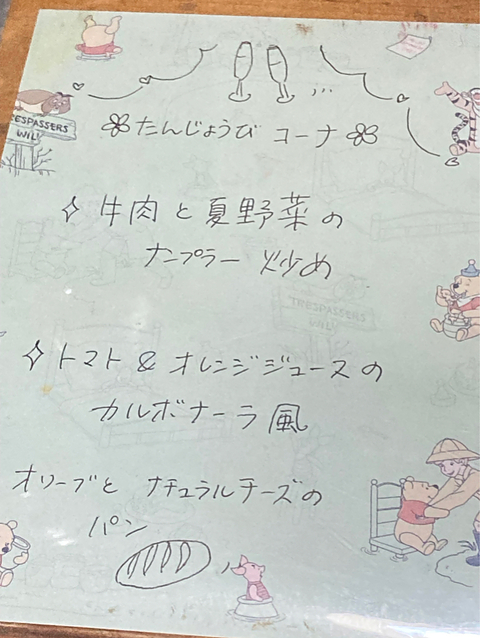 たんじょうび コーナ
牛肉と夏野菜の
ナンプラー炒め
トマト&オレンジジュースの
カルボナーラ風
オリーブと ナチュラルチーズの
パン
TRESPASSERS
WILL
TRESPASSERS
WILL